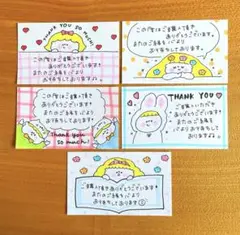 THANK YOU SO MUCH!
この度はご購入頂き
ありがとうございます
またのご縁を心より
お待ちしております
この度はご購入頂き
ありがとうございます
またのご縁を心より
お待ちしております
この度はご購入頂き
ありがとうございます
またのご縁を心より
お待ちしております
Thank you
so much!
THANK YOU
ご購入いただき
ありがとうございます
またのご縁を心より
お待ちしております
ご購入頂きありがとうございます
またのご縁を心より
お待ちしております